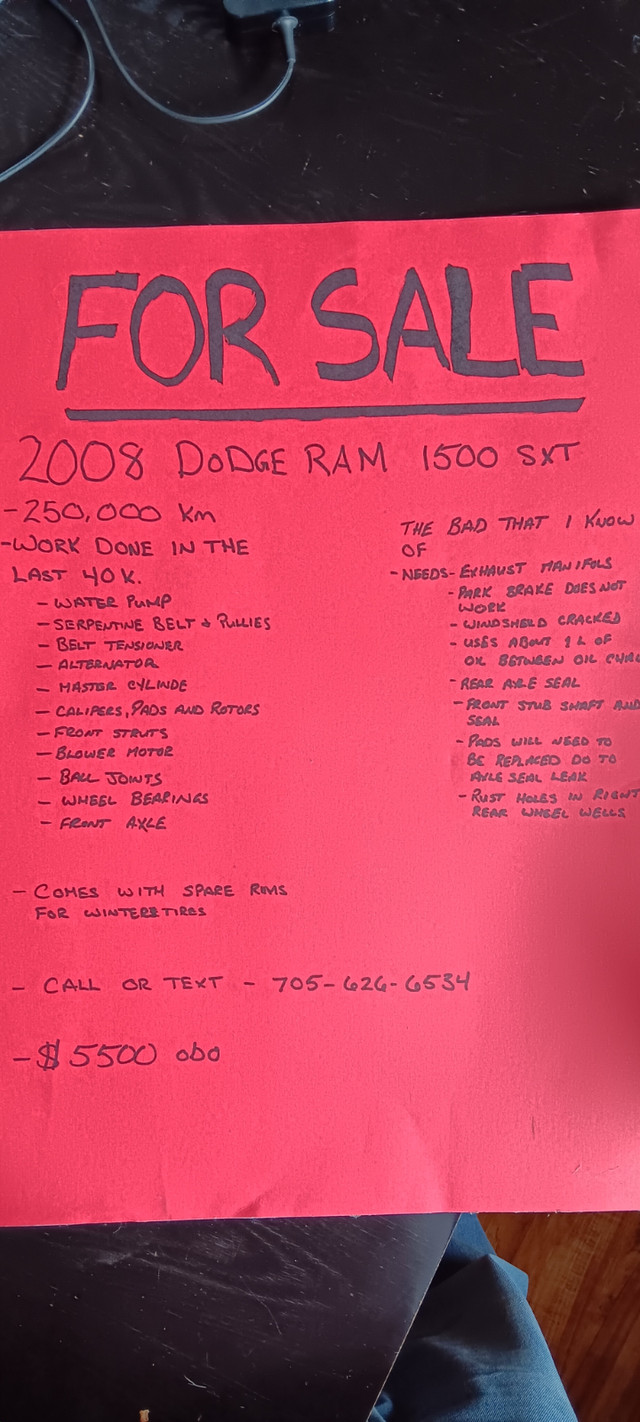 FOR SALE
2008 DODGE RAM 1500 SXT
-250,000 Km
-WORK DONE IN THE
LAST 40K.
- WATER PUMP
- SERPENTINE BELT & PULLIES
- BELT TENSIONER
- ALTERNATOR
- MASTER CYLINDE
- CALIPERS, PADS AND ROTORS
- FRONT STRUTS
- BLOWER MOTOR
- BALL JOINTS
- WHEEL BEARINGS
- FRONT AXLE
THE BAD THAT I KNOW
OF
-NEEDS- EXHAUST MANIFOLS
- PARK BRAKE DOES NOT
WORK
- WINDSHELD CRACKED
- USES ABOUT 1 L OF
OIL BETWEEN OIL CHAG
- REAR AXLE SEAL
- FRONT STUB SHAFT AND
SEAL
- PADS WILL NEED TO
BE REPLACED DO TO
AXLE SEAL LEAK
- RUST HOLES IN RIGHT
REAR WHEEL WELLS
- COMES WITH SPARE RIMS
FOR WINTER TIRES
- CALL OR TEXT - 705-626-6534
- $5500 obo